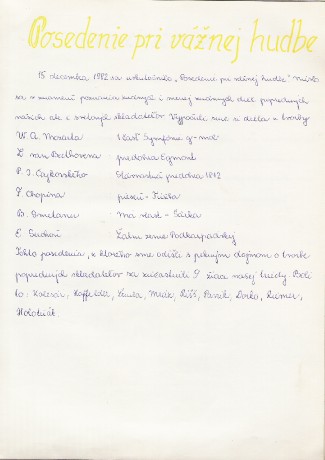 Posedenie pri vážnej hudbe
15 decembra 1982 sa uskutočnilo „Posedenie pri vážnej hudbe“
sa v znamení poznania známych i menej známych diel popredných
našich ale i svetových skladateľov Vypočuli sme si diela z tvorby
W. A. Mozarta 1 časť Symfónie g-mol
L. van Beethovena predohra Egmont
P. I. Čajkovského Slávnostná predohra 1812
F. Chopina pieseň - Túžba
B. Smetanu Má vlast - Šárka
E. Suchoň Žalm zeme Podkarpatskej
Tohto posedenia, z ktorého sme odišli s pekným dojmom o tvorbe
popredných skladateľov sa zúčastnili 9 žiaci našej triedy. Boli
to: Kolesár, Koffelder, Mráz, Pavek,